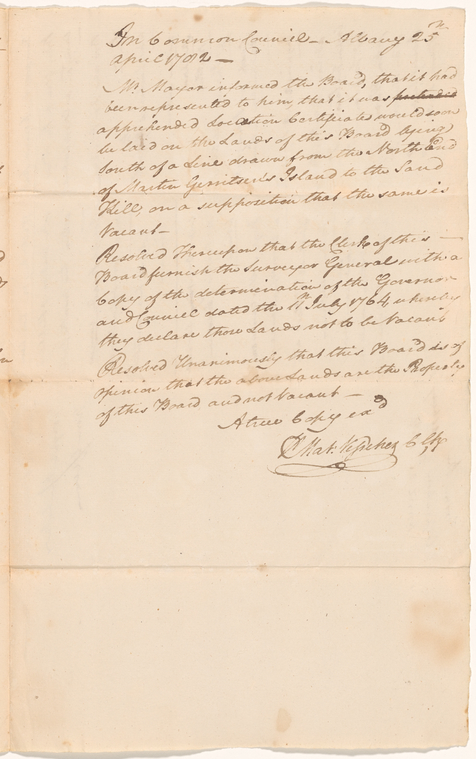 In Common Council – Albany 25th
April 1782 –
Mr Mayor informed the Board, that it had
been represented to him, that it was
apprehended Location Certificates would soon
be laid on the Lands of this Board lying
South of a Line drawn from the North End
of Martin Gerritsens Island to the Sand
Kill, on a supposition that the same is
Vacant –
Resolved Thereupon that the Clerk of this
Board furnish the Surveyor General with a
Copy of the determination of the Governor
and Council dated the 11th July 1764 whereby
they declare those Lands not to be Vacant
Resolved Unanimously that this Board is of
opinion that the above Lands are the Property
of this Board and not Vacant –
A true Copy exd
Mat: Visscher Clk